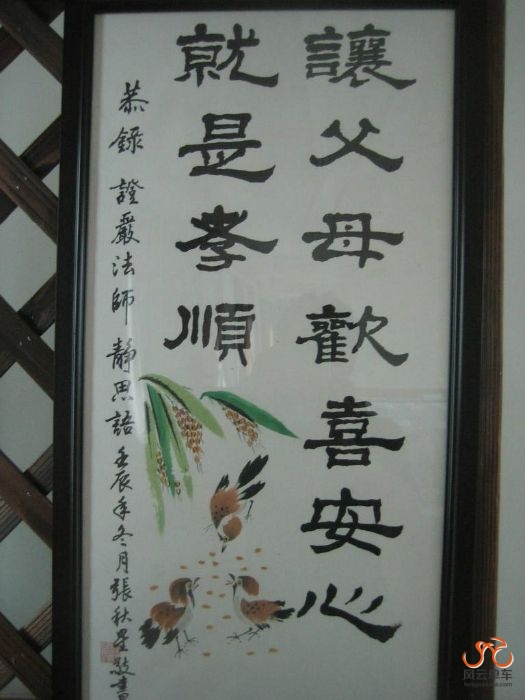 讓父母歡喜安心
就是孝順
恭錄 證嚴法師 靜思語 壬辰年冬月張秋星敬書
风云单车